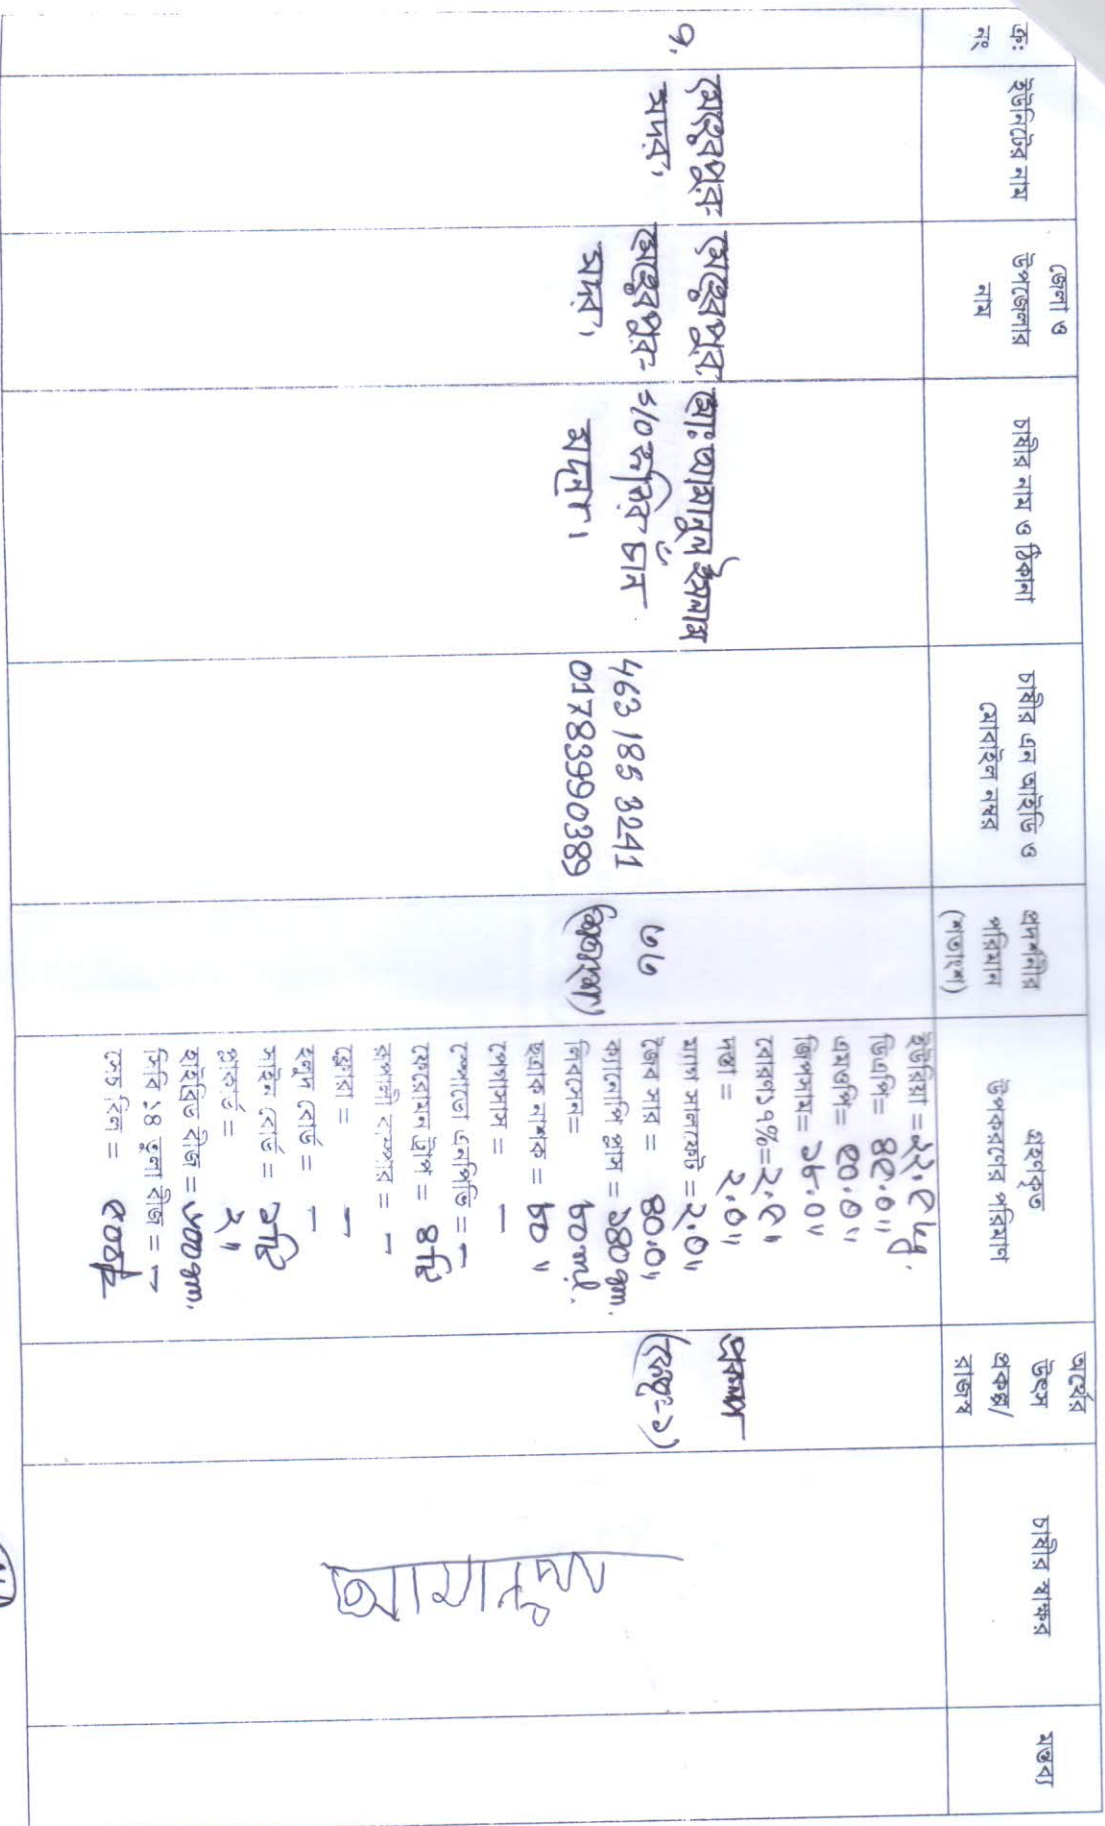 ক্রঃ
নং
ইউনিটের নাম
জেলা ও
উপজেলার
নাম
চাষীর নাম ও ঠিকানা
চাষীর এন আইডি ও
মোবাইল নম্বর
প্রদর্শনীর
পরিমান
(শতাংশ)
গ্রহণকৃত
উপকরণের পরিমাণ
অর্থের
উৎস
প্রকল্প/
রাজস্ব
চাষীর স্বাক্ষর
মন্তব্য
৭.
মেহেরপুর
সদর,
মেহেরপুর
মেহেরপুর-
সদর,
মোঃ আমানুল ইসলাম
S/O
463 185 3241
01783990389
৩৩
প্রকল্প
ইউরিয়া = ২২.৫ kg.
ডিএপি= ৪৫.০ "
এমওপি= ৫০.০ "
জিপসাম= ১৮.০ "
বোরণ১৭%= ২.৫ "
দস্তা = ২.০ "
ম্যাগ সালফেট = ২.০ "
জৈব সার = ৪০.০ "
কানোপি প্লাস = ১৪০ gm.
লিবসেন= ৮০ ml.
ছত্রাক নাশক = ৮০ "
পেগাসাস = –
স্পডো এনপিভি = –
ফেরোমন ট্রাপ = ৪টি
রূপালী বাম্পার = –
ফ্লোরা = –
হলুদ বোর্ড = –
সাইন বোর্ড = ১টি
প্লাকার্ড = ২ "
হাইব্রিড বীজ = ৬০০ gm.
সিবি ১৪ তুলা বীজ = –
সেচ বিল =
আমানুল